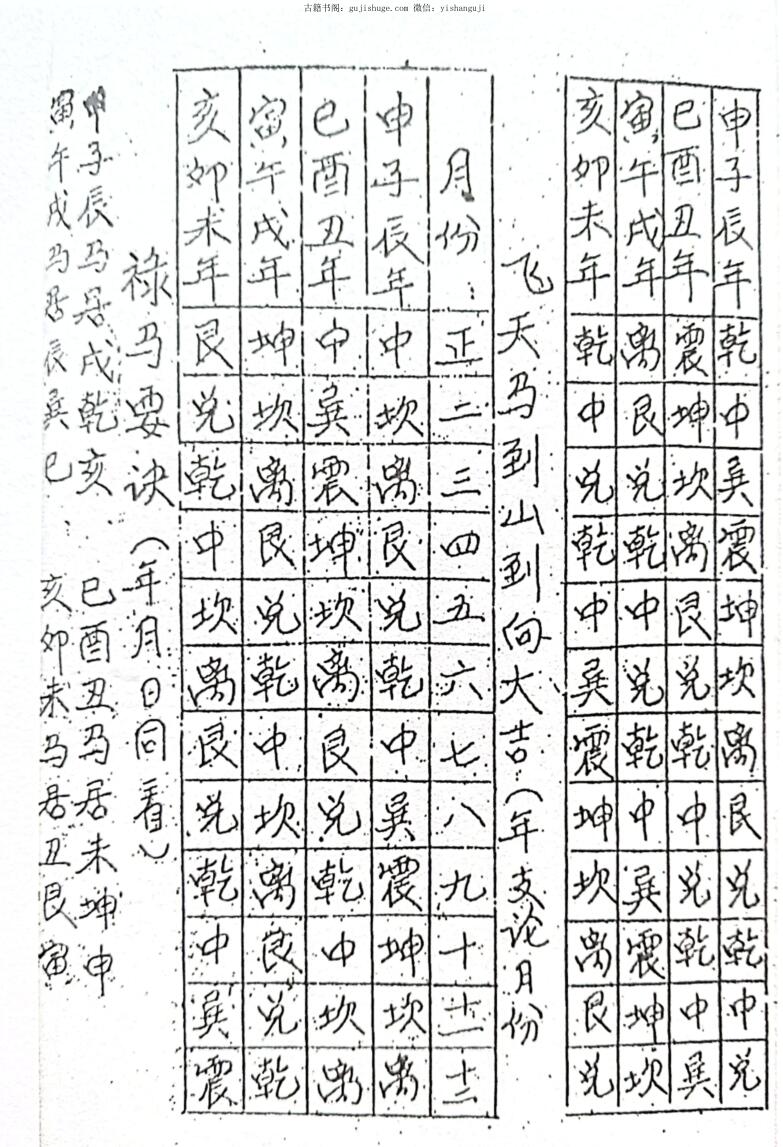 古籍书阁：gujishuge.com 微信：yishanguji
申子辰年 乾 中 巽 震 坤 坎 离 艮 兑 乾 中 兑
巳酉丑年 震 坤 坎 离 艮 兑 乾 中 兑 乾 中 巽
寅午戌年 离 艮 兑 乾 中 兑 乾 中 巽 震 坤 坎
亥卯未年 乾 中 兑 乾 中 巽 震 坤 坎 离 艮 兑
飞天马到山到向大吉（年支论月份
月份： 正 二 三 四 五 六 七 八 九 十 十一 十二
申子辰年 中 坎 离 艮 兑 乾 中 巽 震 坤 坎 离
巳酉丑年 中 巽 震 坤 坎 离 艮 兑 乾 中 坎 离
寅午戌年 坤 坎 离 艮 兑 乾 中 坎 离 艮 兑 乾
亥卯未年 艮 兑 乾 中 坎 离 艮 兑 乾 中 巽 震
禄马要诀（年月日同看）
申子辰马居戌乾亥 巳酉丑马居未坤申
寅午戌马居辰巽巳： 亥卯未马居丑艮寅